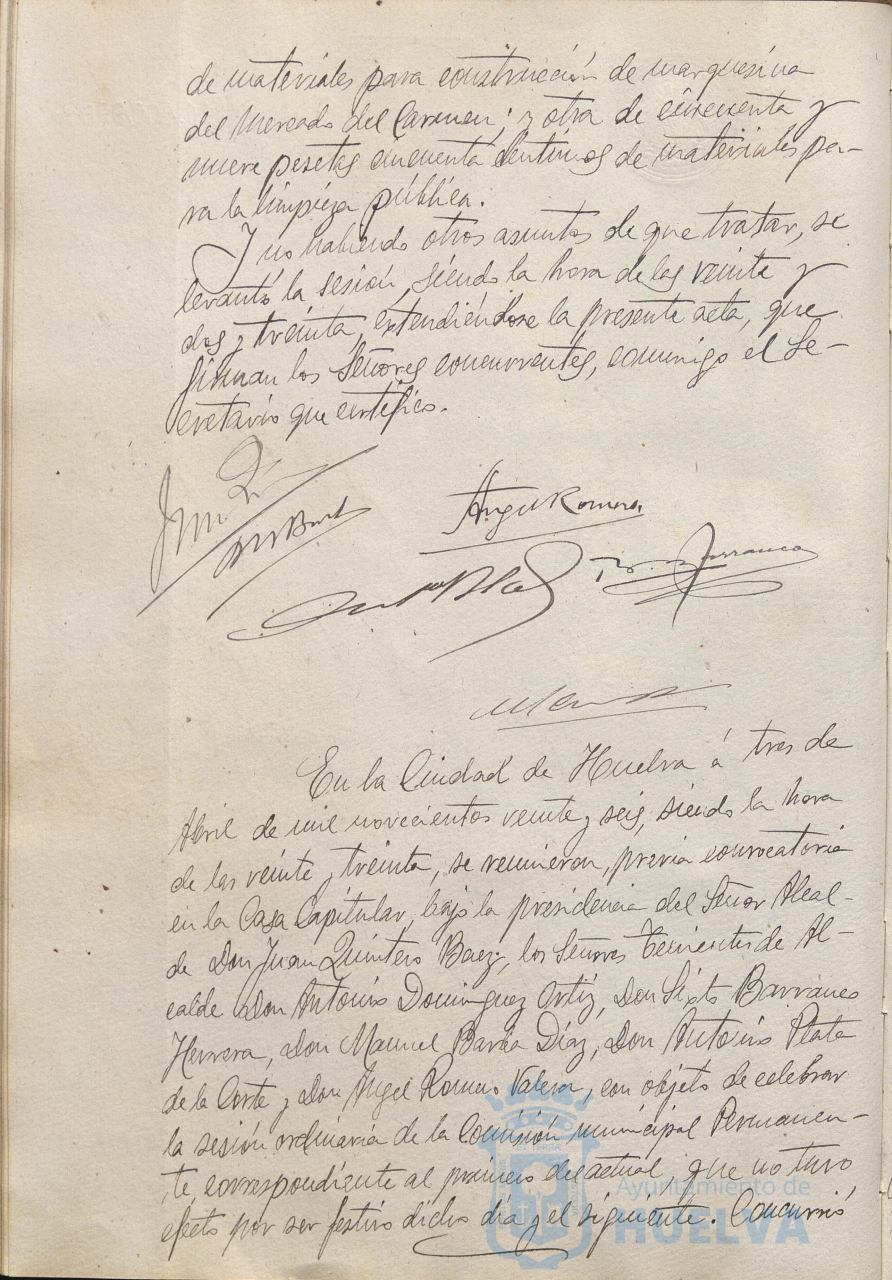 de materiales para construcción de marquesina
del Mercado del Carmen; y otra de cincuenta y
nueve pesetas cincuenta céntimos de materiales pa-
ra la limpieza pública.
Y no habiendo otros asuntos de que tratar, se
levantó la sesión, siendo la hora de las veinte y
dos y treinta, extendiéndose la presente acta, que
firman los Señores concurrentes, conmigo el Se-
cretario que certifico.
Angel Romero
En la Ciudad de Huelva á tres de
Abril de mil novecientos veinte y seis, siendo la hora
de las veinte y treinta, se reunieron, previa convocatoria
en la Casa Capitular, bajo la presidencia del Señor Alcal-
de Don Juan Quintero Baez, los Señores Tenientes de Al-
calde Don Antonio Dominguez Ortiz, Don Sixto Barranco
Herrera, Don Manuel Barba Díaz, Don Antonio Plata
de la Corte y Don Angel Romero Valera, con objeto de celebrar
la sesión ordinaria de la Comisión municipal Permanen-
te, correspondiente al primero del actual, que no tuvo
efecto por ser festivo dicho día y el siguiente. Concurrió
Ayuntamiento de
HUELVA